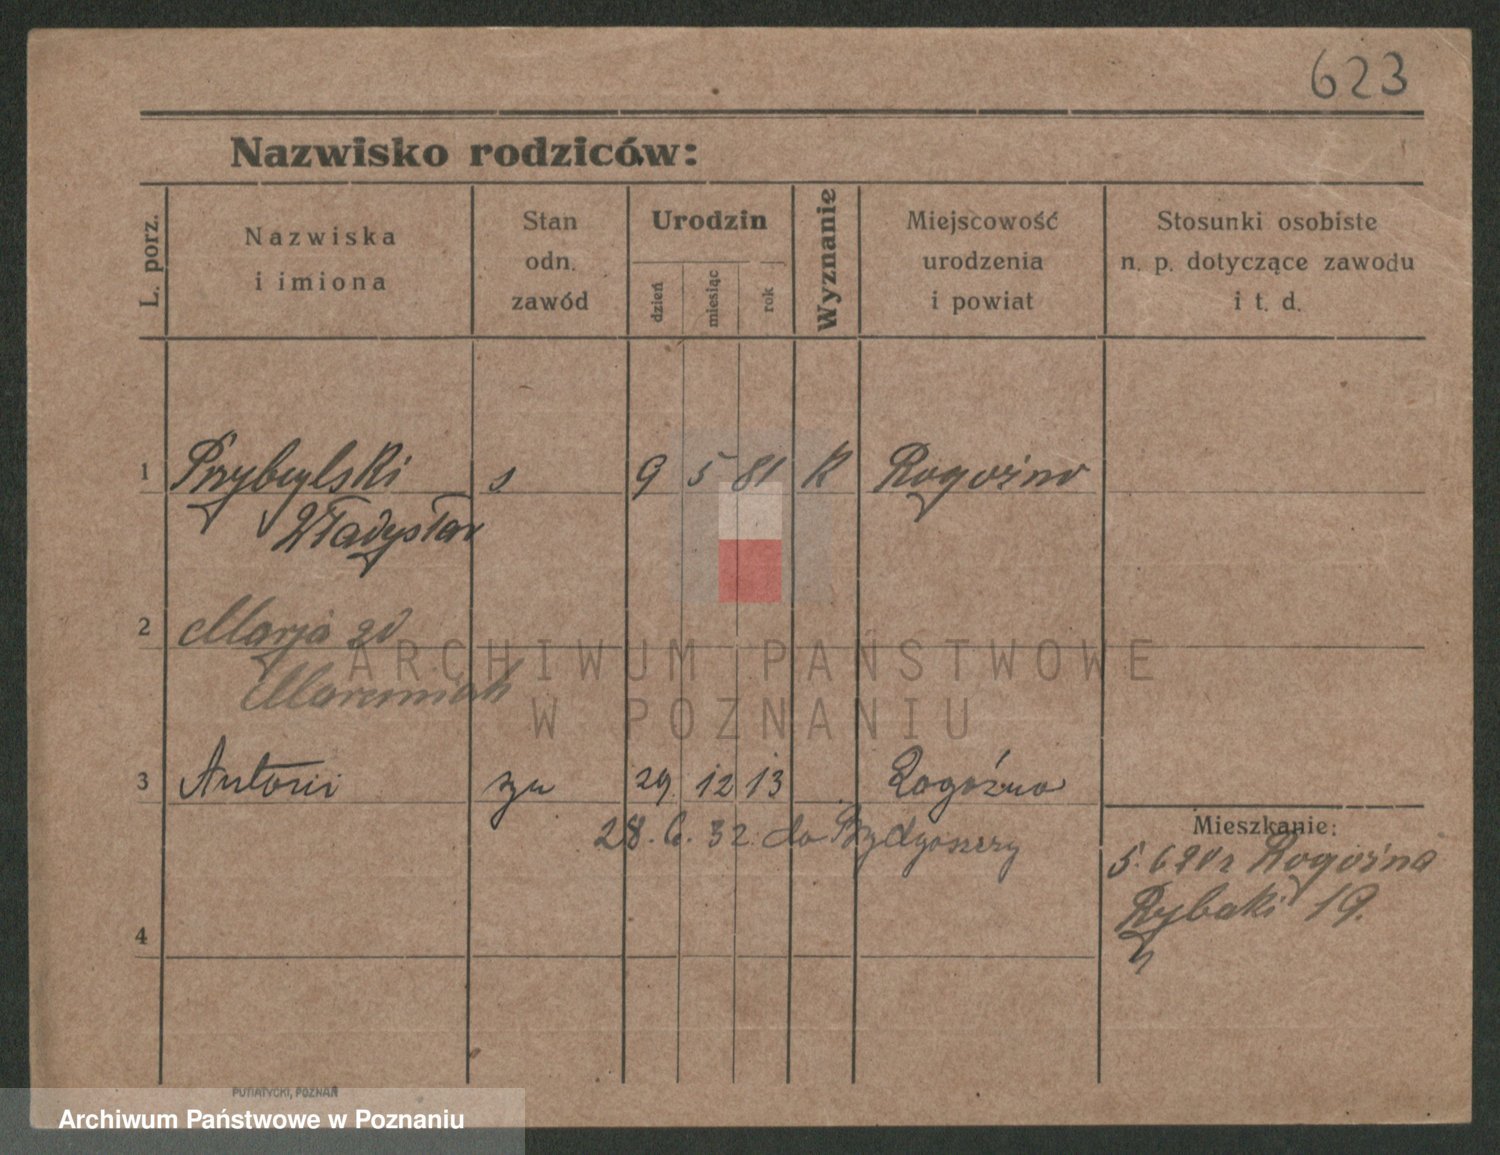 623
Nazwisko rodziców:
L. porz.
Nazwiska
i imiona
Stan
odn.
zawód
Urodzin
dzień
miesiąc
rok
Wyznanie
Miejscowość
urodzenia
i powiat
Stosunki osobiste
n. p. dotyczące zawodu
i t. d.
1 Przybylski s 9 5 81 K Rogoźno
Władysław
2 Marja
ARCHIWUM PAŃSTWOWE
W POZNANIU
3 Antoni 29. 12 13 Rogoźno
28. 6. 32. do Bydgoszczy
Mieszkanie:
Rogoźno
Rybaki 19.
4
PUTIATYCKI, POZNAŃ
Archiwum Państwowe w Poznaniu